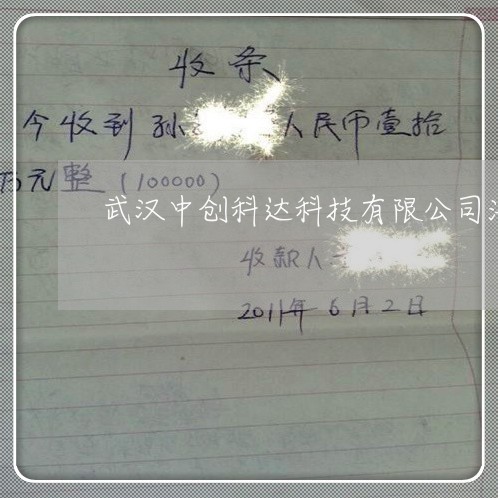 收条
今收到孙 人民币壹拾
万元整(100000)
武汉中创科达科技有限公司
收款人
2011年6月2日